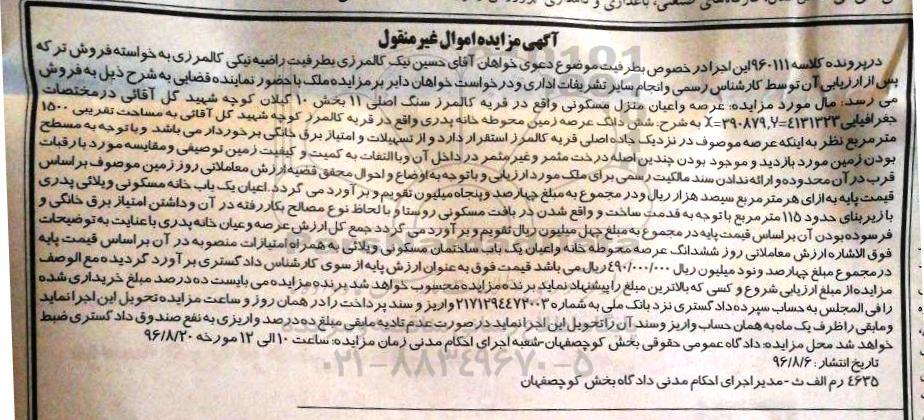 آگهی مزایده اموال غیر منقول
در پرونده کلاسه ۹۶۰۱۱۱ این اجرا در خصوص بطرفیت موضوع دعوی خواهان آقای حسین نیک کالمرزی بطرفیت راضیه نیکی کالمرزی به خواسته فروش ترکه
پس از ارزیابی آن توسط کارشناس رسمی و انجام سایر تشریفات اداری و درخواست خواهان دایر بر مزایده ملک با حضور نماینده قضایی به شرح ذیل به فروش
می رسد: مال مورد مزایده: عرصه و اعیان منزل مسکونی واقع در قریه کالمرز سنگ اصلی ۱۱ بخش ۱۰ گیلان کوچه شهید گل آقائی در مختصات
جغرافیایی X=۳۹۰۸۷۹,Y=۴۱۳۱۳۲۳ به شرح: شش دانگ عرصه زمین محوطه خانه پدری واقع در قریه کالمرز کوچه شهید گل آقائی به مساحت تقریبی ۱۵۰۰
متر مربع نظر به اینکه عرصه موصوف در نزدیک جاده اصلی قریه کالمرز استقرار دارد و از تسهیلات و امتیاز برق خانگی برخوردار می باشد. و با توجه به مسطح
بودن زمین مورد بازدید و موجود بودن چندین اصله درخت مثمر و غیر مثمر در داخل آن و با التفات به کمیت و کیفیت زمین توصیفی و مقایسه مورد با رقبات
قرب در آن محدوده و ارائه ندادن سند مالکیت رسمی برای ملک مورد ارزیابی و با توجه به اوضاع و احوال محقق قضیه ارزش معاملاتی روز زمین موصوف بر اساس
قیمت پایه به ازای هر متر مربع سیصد هزار ریال و در مجموع به مبلغ چهارصد و پنجاه میلیون تقویم و بر آورد می گردد. اعیان یک باب خانه مسکونی ویلائی پدری
با زیر بنای حدود ۱۱۵ متر مربع با توجه به قدمت ساخت و واقع شدن در بافت مسکونی روستا و با لحاظ نوع مصالح بکار رفته در آن و داشتن امتیاز برق خانگی و
فرسوده بودن آن بر اساس قیمت پایه در مجموع به مبلغ چهل میلیون ریال تقویم و بر آورد می گردد جمع کل ارزش عرصه و عیان خانه پدری با عنایت به توضیحات
فوق الاشاره ارزش معاملاتی روز ششدانگ عرصه محوطه خانه و اعیان یک باب ساختمان مسکونی ویلائی به همراه امتیازات منصوبه در آن بر اساس قیمت پایه
در مجموع مبلغ چهارصد و نود میلیون ریال ۴۹۰/۰۰۰/۰۰۰ ریال می باشد قیمت فوق به عنوان ارزش پایه از سوی کارشناس دادگستری بر آورد گردیده مع الوصف
مزایده از مبلغ ارزیابی شروع و کسی که بالاترین مبلغ را پیشنهاد نماید برنده مزایده محسوب خواهد شد برنده مزایده می بایست ده درصد مبلغ خریداری شده
را فی المجلس به حساب سپرده دادگستری نزد بانک ملی به شماره ۲۱۷۱۲۹۴۴۷۲۰۰۳ واریز و سند پرداخت را در همان روز و ساعت مزایده تحویل این اجرا نماید
و مابقی را ظرف یک ماه به همان حساب واریز و سند آن را تحویل این اجرا نماید در صورت عدم تادیه مابقی مبلغ ده درصد واریزی به نفع صندوق دادگستری ضبط
خواهد شد محل مزایده: دادگاه عمومی حقوقی بخش کوچصفهان-شعبه اجرای احکام مدنی زمان مزایده: ساعت ۱۰ الی ۱۲ مورخه ۹۶/۸/۲۰
تاریخ انتشار: ۹۶/۸/۶
۴۶۳۵ رم الف ث - مدیر اجرای احکام مدنی دادگاه بخش کوچصفهان
۰۲۱-۸۸۳۴۹۶۷۰-۵